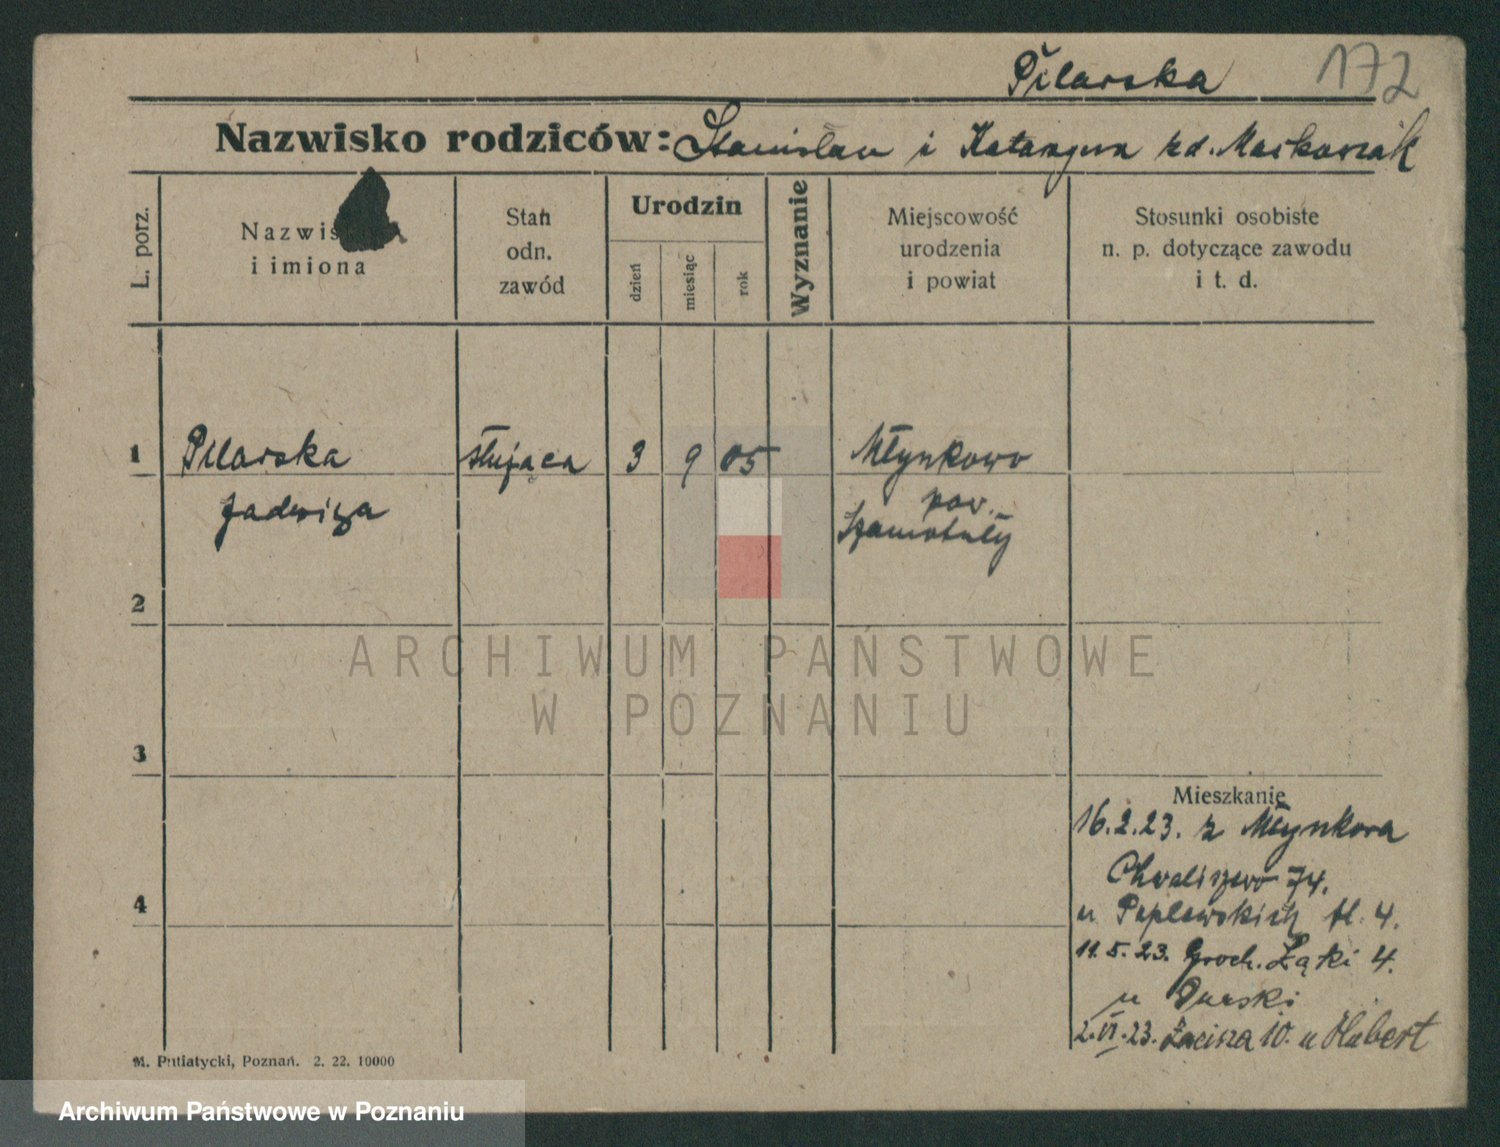 Pilarska 172
Nazwisko rodziców: Stanisław i Katarzyna zd. Maćkowiak
L. porz.
Nazwisko
i imiona
Stan
odn.
zawód
Urodzin
dzień
miesiąc
rok
Wyznanie
Miejscowość
urodzenia
i powiat
Stosunki osobiste
n. p. dotyczące zawodu
i t. d.
1 Pilarska służąca 3 9 05 Młynkowo
Jadwiga pow.
Szamotuły
2
ARCHIWUM PAŃSTWOWE
W POZNANIU
3
Mieszkanie
16.2.23. z Młynkowa
Chwaliszewo 74.
4
u Poplewskich tl. 4.
11.5.23. Groch. Łąki 4.
u Purski
2.VI.23. Zacisza 10. u Hubert
M. Putiatycki, Poznań. 2. 22. 10000
Archiwum Państwowe w Poznaniu